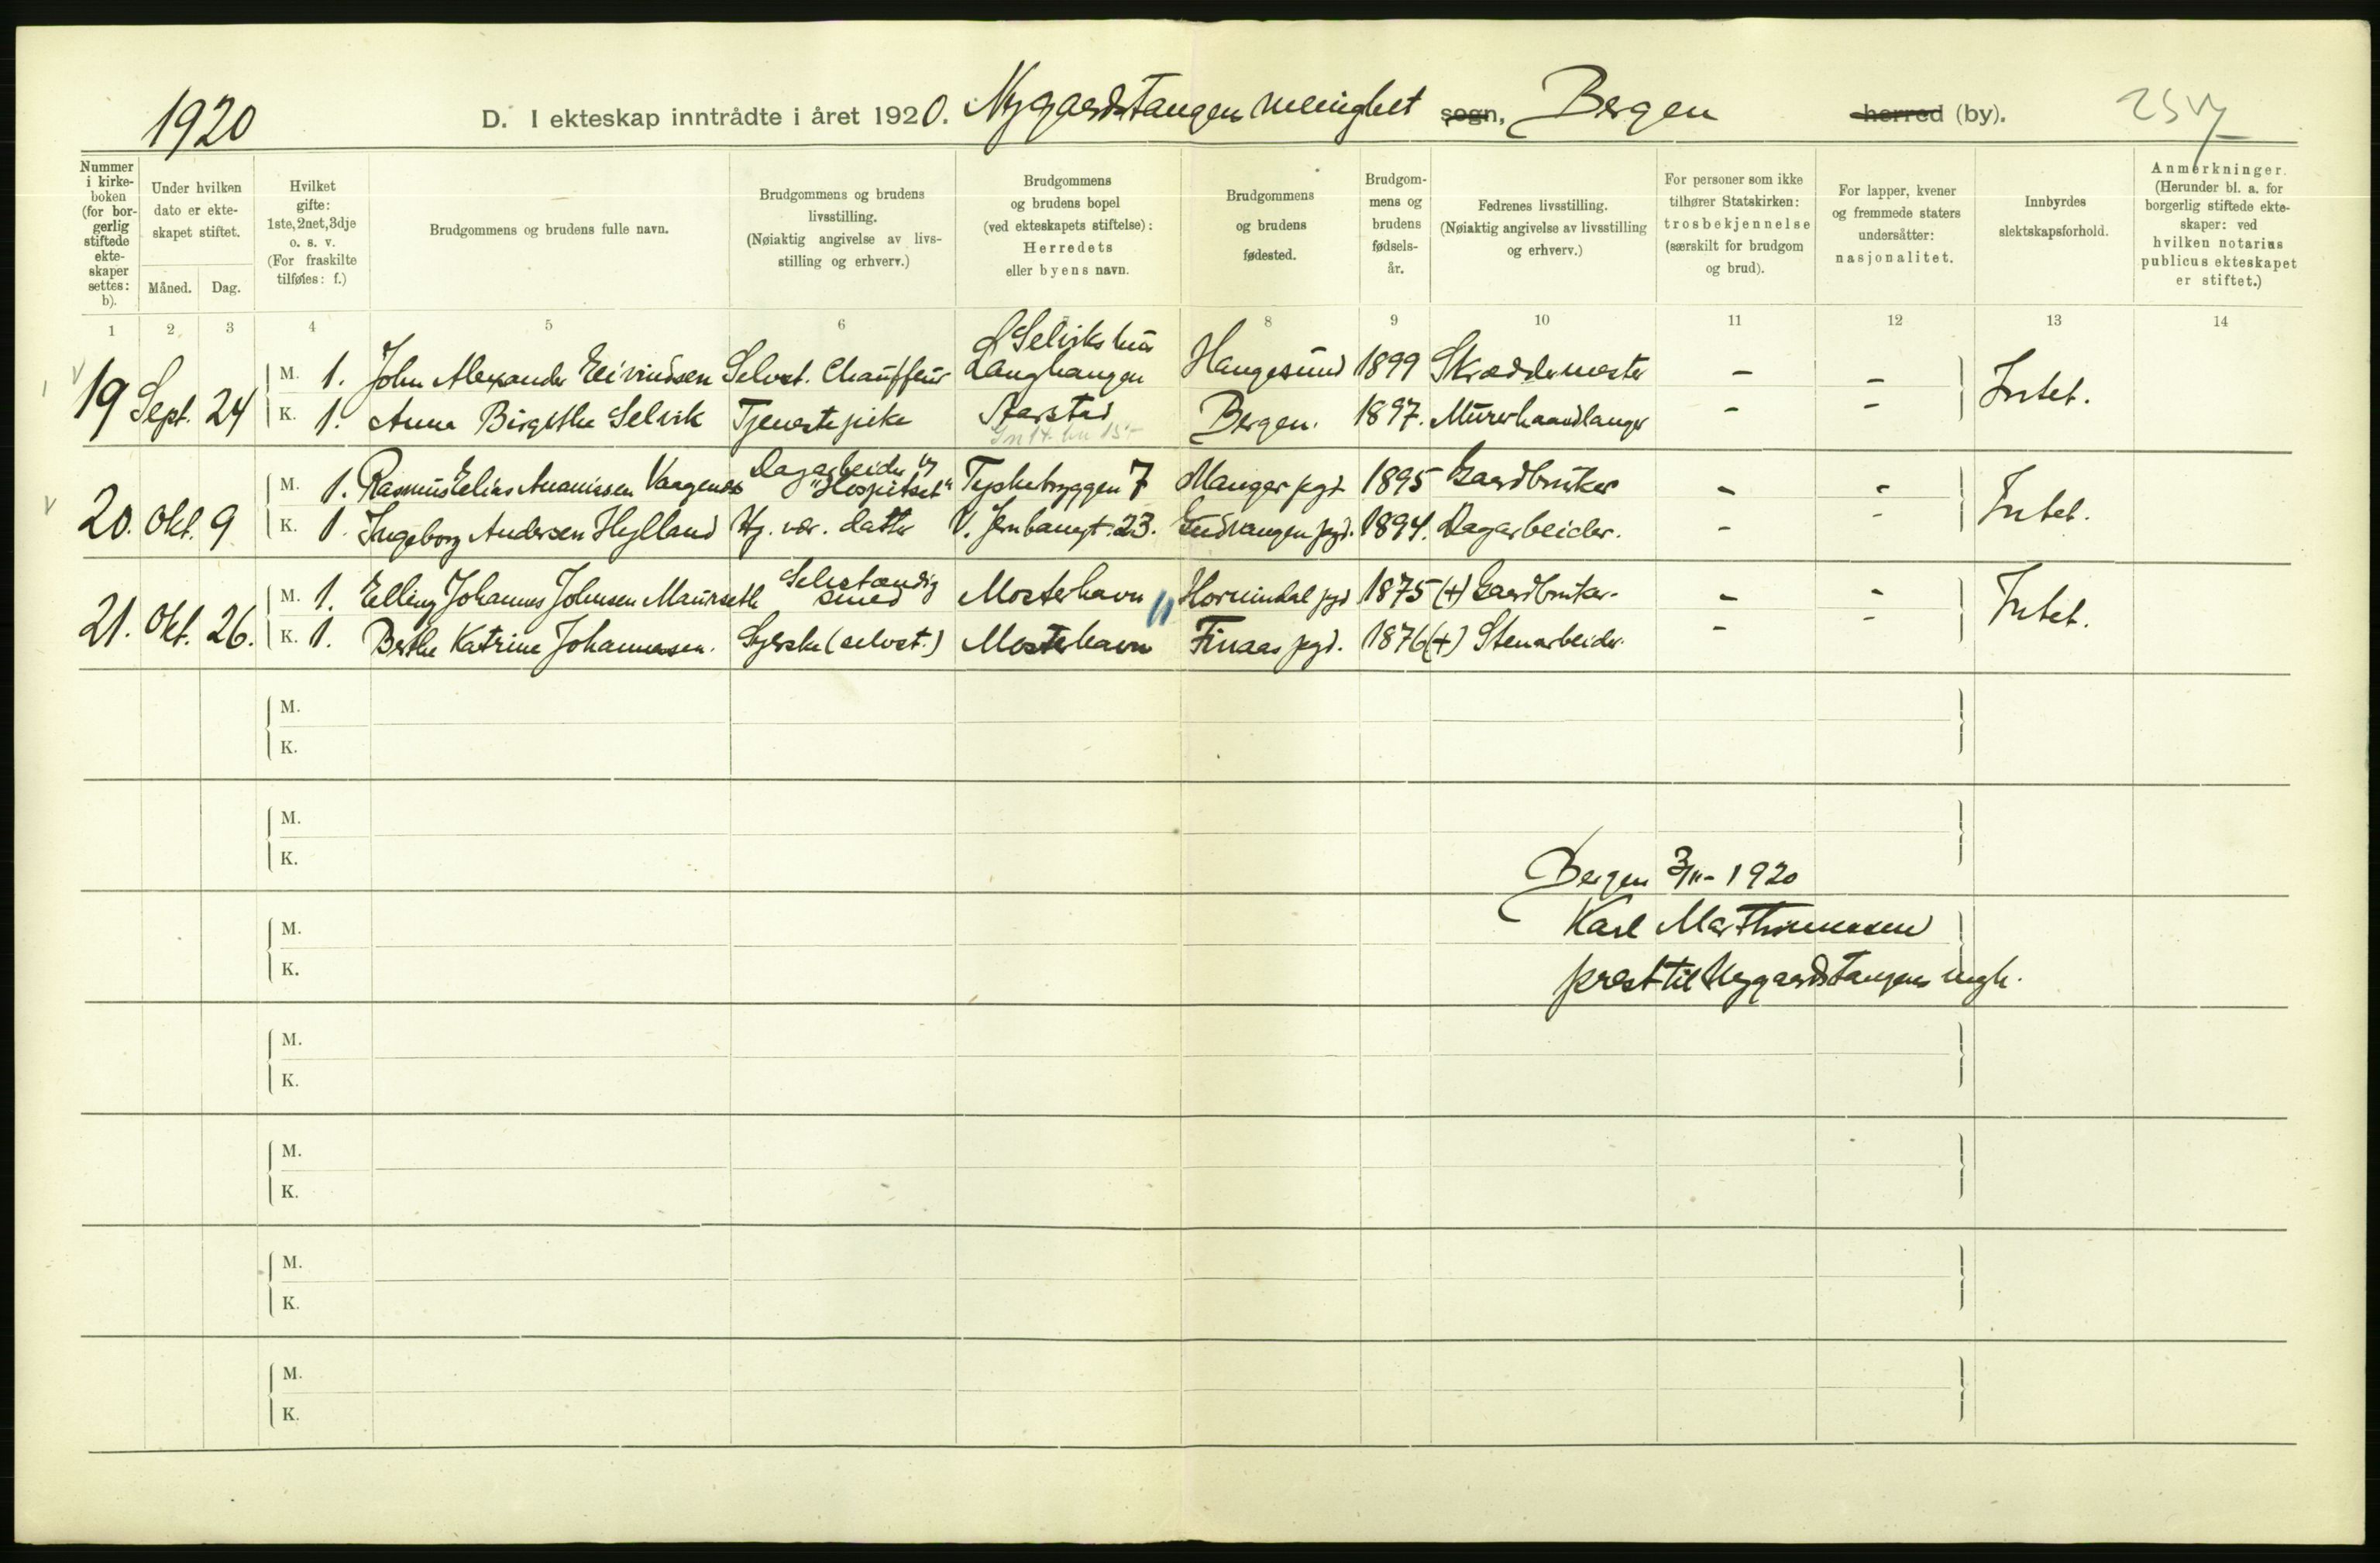 1920 D. I ekteskap inntrådte i året 1920. Nygaardstangen menighet sogn, Bergen herred (by).
Nummer i kirke-boken (for bor-gerlig stiftede ekte-skaper settes: b).
Under hvilken dato er ekte-skapet stiftet.
Måned. Dag.
Hvilket gifte: 1ste, 2net, 3dje o. s. v. (For fraskilte tilføies: f.)
Brudgommens og brudens fulle navn.
Brudgommens og brudens livsstilling. (Nøiaktig angivelse av livs-stilling og erhverv.)
Brudgommens og brudens bopel (ved ekteskapets stiftelse): Herredets eller byens navn.
Brudgommens og brudens fødested.
Brudgom-mens og brudens fødsels-år.
Fedrenes livsstilling. (Nøiaktig angivelse av livsstilling og erhverv.)
For personer som ikke tilhører Statskirken: trosbekjennelse (særskilt for brudgom og brud).
For lapper, kvener og fremmede staters undersåtter: nasjonalitet.
Innbyrdes slektskapsforhold.
Anmerkninger. (Herunder bl. a. for borgerlig stiftede ekte-skaper: ved hvilken notarius publicus ekteskapet er stiftet.)
1 2 3 4 5 6 7 8 9 10 11 12 13 14
19 Sept. 24
M. 1. John Alexander Eivindsen Selvst. Chauffeur Selviks hus Langhaugen Haugesund 1899 Skræddermester - - Intet.
K. 1. Anna Birgithe Selvik Tjenestepike Aarstad Bergen. 1897. Murerhaandlanger - -
20. Okt. 9
M. 1. Rasmus Elias Ananiassen Vaagenes Dagarbeider "Hospitset" Tyskebryggen 7 Manger pgd 1895 Gaardbruker - - Intet.
K. 1. Ingeborg Andersen Hylland Hj. vær. datter V. Jernbanegt. 23. Gudvangen pgd. 1894. Dagarbeider. - -
21. Okt. 26.
M. 1. Elling Johannes Johnsen Maurseth Selvstændig smed Mosterhavn Hornindal pgd 1875 (+) Gaardbruker. - - Intet.
K. 1. Berthe Katrine Johannesen. Syerske (selvst.) Mosterhavn Finaas pgd. 1876 (+) Stenarbeider. - -
M.
K.
M.
K.
Bergen 3/11-1920
M.
Karl Marthinussen
K.
prest til Nygaardstangens mgh.
M.
K.
M.
K.
M.
K.
M.
K.